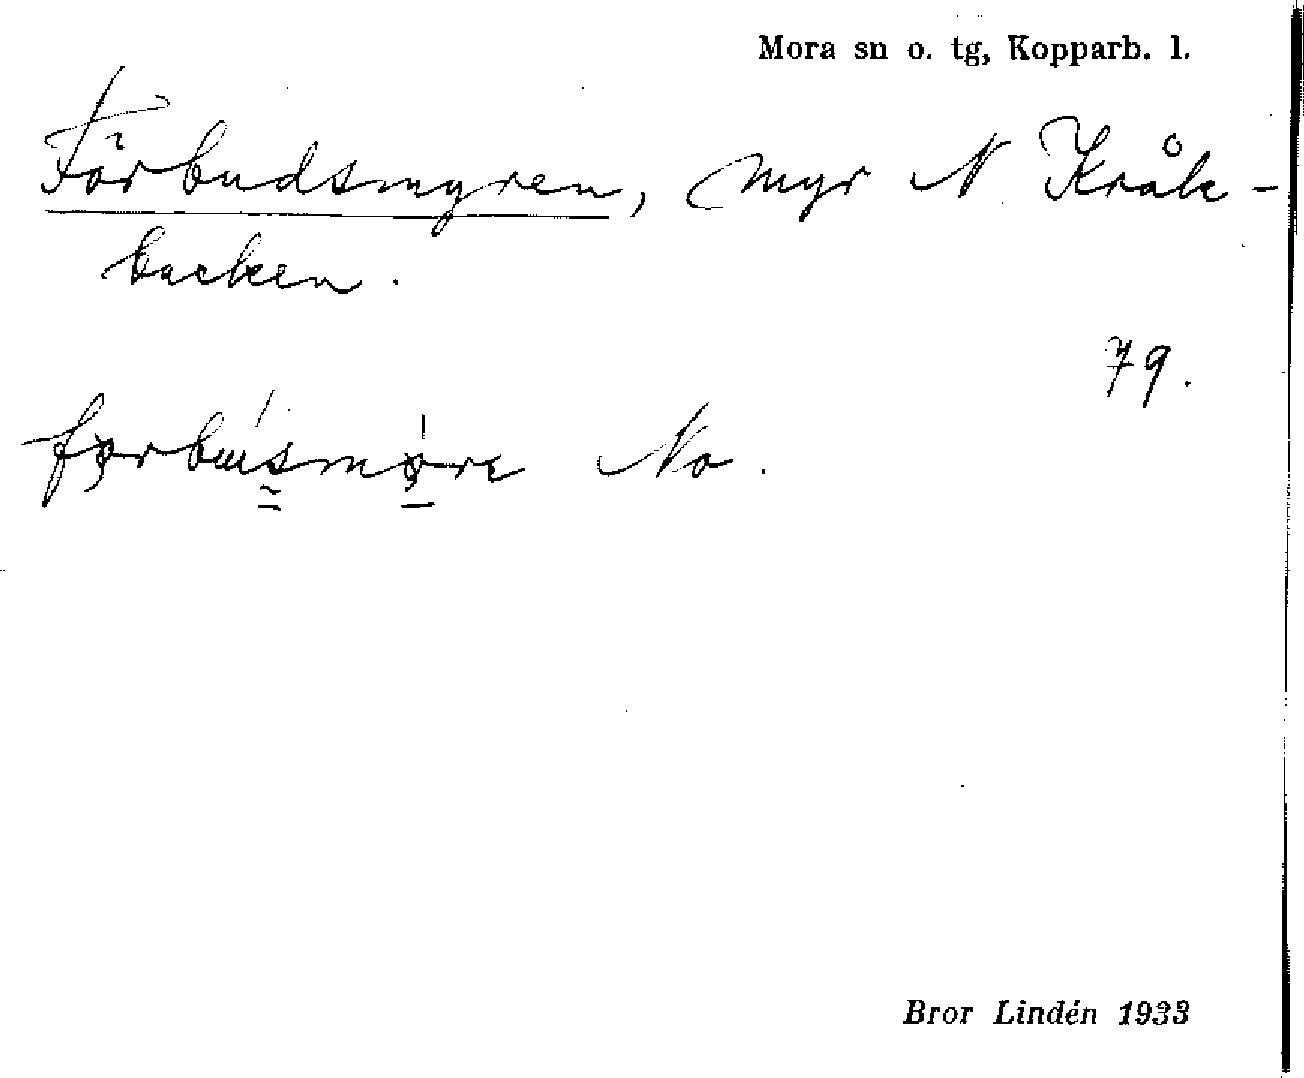 Mora sn o. tg, Kopparb. l.
Förbudsmyren, myr N Kråk-
backen.
79.
No.
Bror Lindén 1933